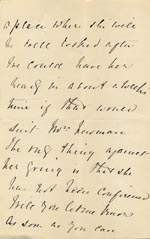 a place where she will
be well looked after
We could have her
ready in about a
time if that would
suit Mrs. Newman
The only thing against
her going is that she
has not been confirmed
Will you let me know
As soon as you can